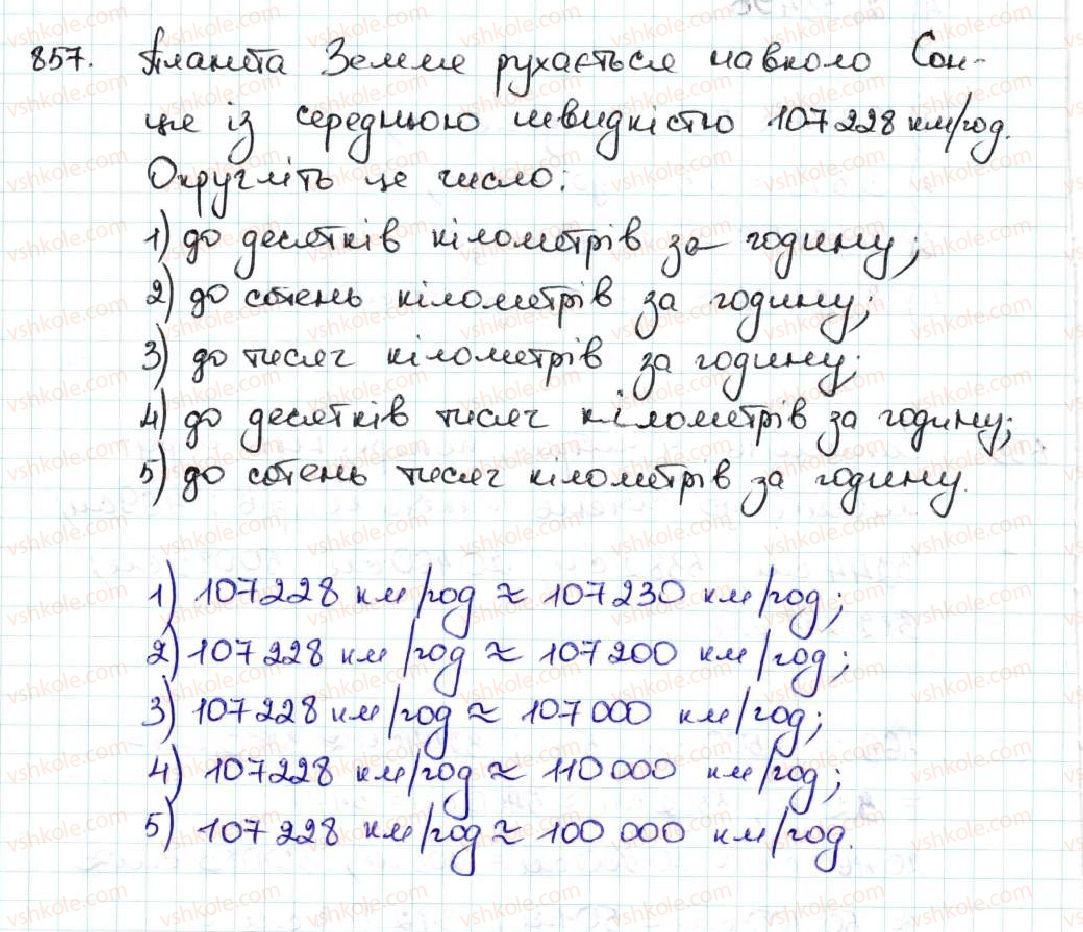 857. Планета Земля рухається навколо Сон-
ця із середньою швидкістю 107 228 км/год.
Округліть це число:
1) до десятків кілометрів за годину;
2) до сотень кілометрів за годину;
3) до тисяч кілометрів за годину;
4) до десятків тисяч кілометрів за годину;
5) до сотень тисяч кілометрів за годину.
1) 107228 км/год ≈ 107230 км/год;
2) 107 228 км/год ≈ 107 200 км/год;
3) 107 228 км/год ≈ 107 000 км/год;
4) 107228 км/год ≈ 110 000 км/год;
5) 107 228 км/год ≈ 100 000 км/год.
vshkole.com